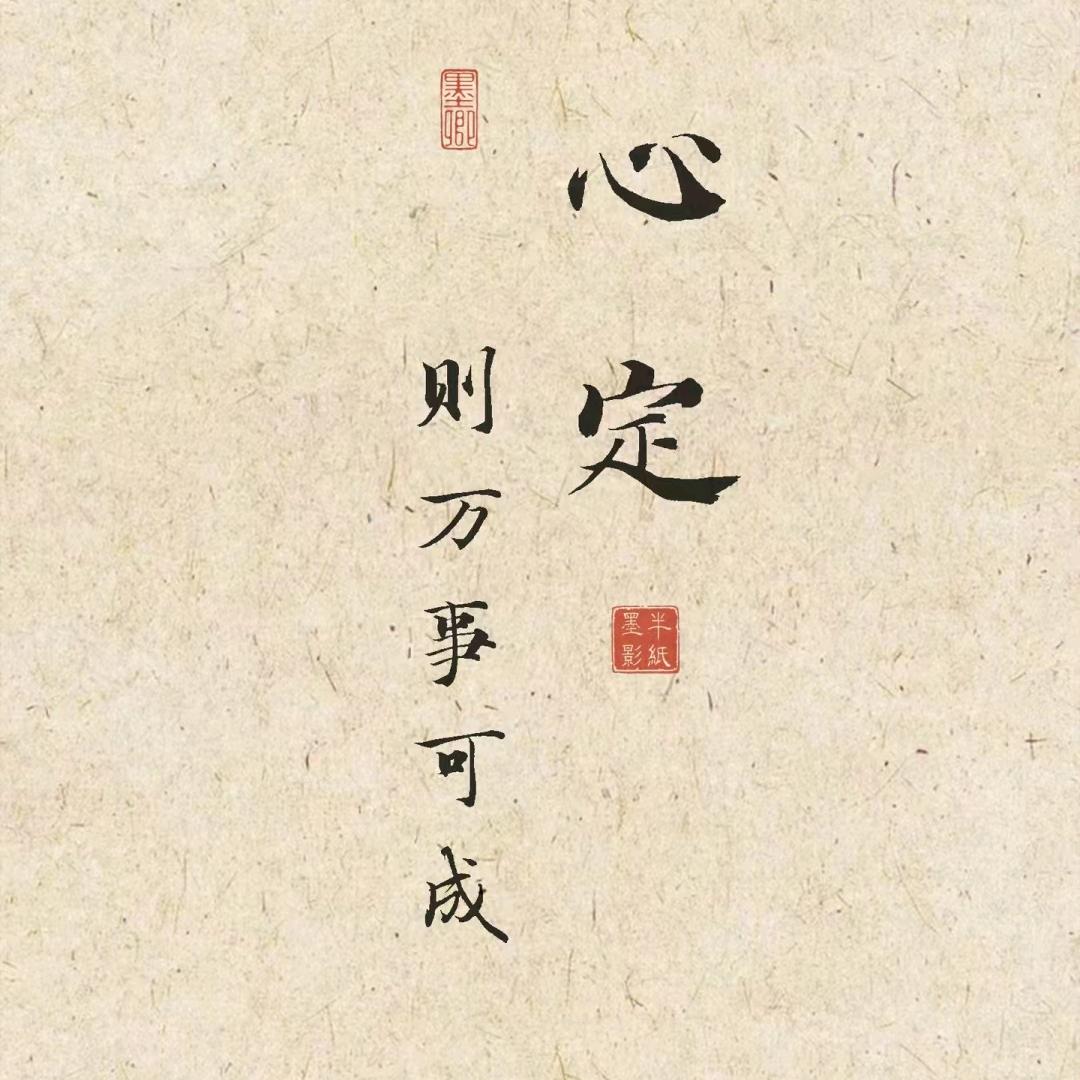 心定
半紙墨影
则万事可成
墨卿